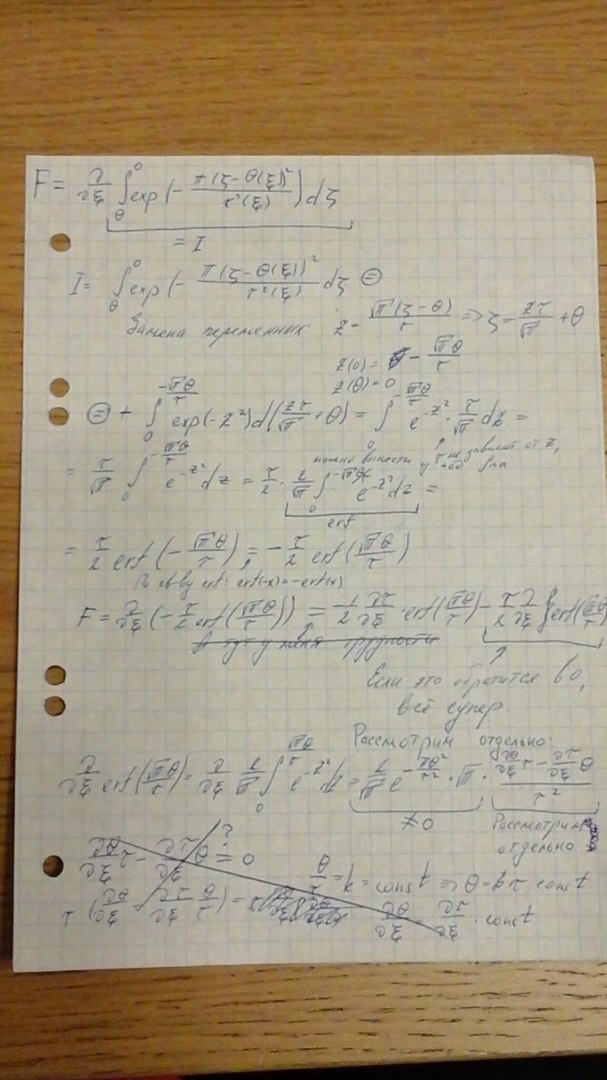 F = ∂/∂ξ ∫_θ^0 exp(− π(ζ−θ(ξ))²/τ²(ξ)) dζ
= I
I = ∫_θ^0 exp(− π(ζ−θ(ξ))²/τ²(ξ)) dζ ⊜
Замена переменных: z = √π(ζ−θ)/τ ⇒ ζ = zτ/√π + θ
z(0) = − √πθ/τ
z(θ) = 0
⊜ + ∫_0^{−√πθ/τ} exp(−z²) d(zτ/√π + θ) = ∫_0^{−√πθ/τ} e^{−z²} · τ/√π dz =
можно вынести, τ не зависит от z,
= τ/√π ∫_0^{−√πθ/τ} e^{−z²} dz = τ/2 · 2/√π ∫_0^{−√πθ/τ} e^{−z²} dz =
erf
= τ/2 erf(− √πθ/τ) = − τ/2 erf(√πθ/τ)
По св-ву erf: erf(-x) = -erf(x)
F = ∂/∂ξ (− τ/2 erf(√πθ/τ)) = − 1/2 ∂τ/∂ξ · erf(√πθ/τ) − τ/2 ∂/∂ξ erf(√πθ/τ)
А тут у меня трудности
Если это обратится в 0,
всё супер.
Рассмотрим отдельно:
∂/∂ξ erf(√πθ/τ) = ∂/∂ξ 2/√π ∫_0^{√πθ/τ} e^{−z²} dz = 2/√π e^{−πθ²/τ²} · √π · (∂θ/∂ξ τ − ∂τ/∂ξ θ)/τ²
≠ 0
Рассмотрим
отдельно
∂θ/∂ξ τ − ∂τ/∂ξ θ =? 0
θ/τ = k = const ⇒ θ = kτ const
τ (∂θ/∂ξ − ∂τ/∂ξ θ/τ) =
∂θ/∂ξ = ∂τ/∂ξ · const